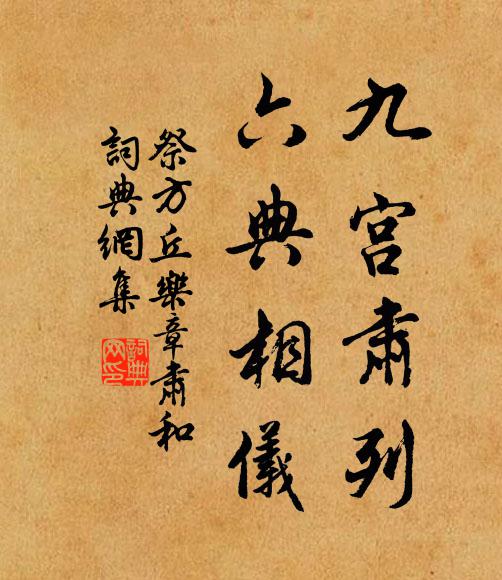 九宮肅列
六典相儀
祭方丘樂章肅和
詞典網集